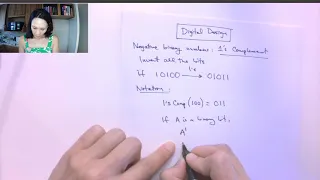 Digital Design
Negative binary numbers: 1's Complement
Invert all the bits
1's
If 10100 → 01011
Notation:
1's Comp (100) = 011
If A is a binary bit,
A'